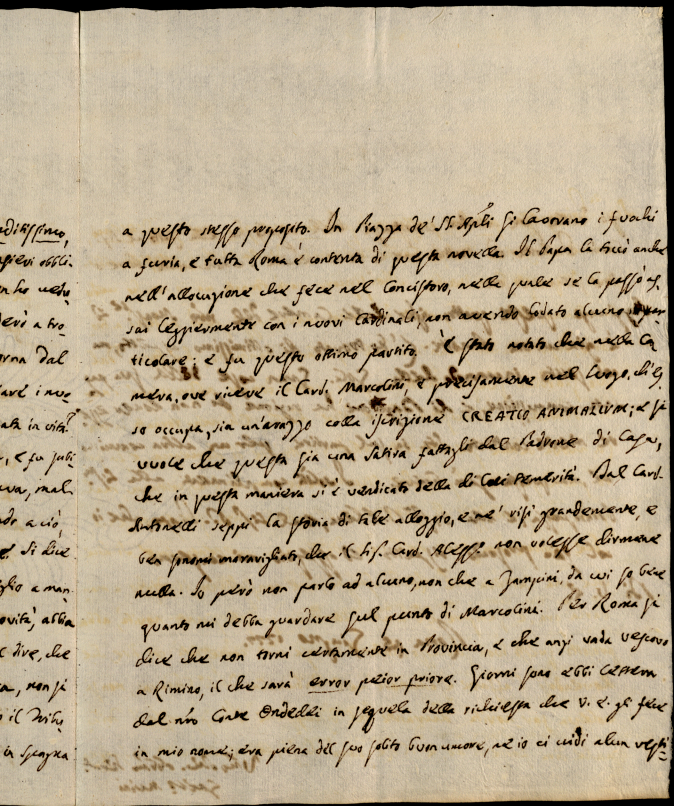 a questo stesso proposito. In Piazza de' SS. Apli si lavorano i fuochi
a furia, e tutta Roma è contenta di questa novella. Il Papa la toccò anche
nell'allocuzione che fece nel Concistoro, nella quale se la passò as-
sai leggiermente con i nuovi Cardinali, non avendo lodato alcuno in par-
ticolare; e fu questo ottimo partito. È stato notato che nella Ca-
mera, ove riceve il Card. Marcolini, e precisamente nel luogo, ch'Es-
so occupa, sia un'arazzo colla iscrizione CREATIO ANIMALIUM; e si
vuole che questa sia una satira fattagli dal Padrone di Casa,
che in questa maniera si è vendicato della di Colui temerità. Dal Card.
Antonelli seppi la storia di tale alloggio, e ne' risi grandemente, e
ben sonomi maravigliato, che il Sig. Card. Alesso non volesse dirmene
nulla. Io però non parlo ad alcuno, non che a Zampini, da cui so bene
quanto mi debba guardare sul punto di Marcolini. Per Roma si
dice che non torni certamente in Provincia, e che anzi vada vescovo
a Rimino, il che sarà error peior priore. Giorni sono ebbi lettera
dal nro Conte Ordeddi in sequela della richiesta che V. E. gli fece
in mio nome; era piena del suo solito buon umore, ne io ci vidi alcun vesti=
ditissimo,
obbli
n ho
derò a tro
orna dal
iare i nuo
ata in città
, e fu
ma, mal
ndo a ciò,
e. Si dice
glio a man
ovità, abbia
e dire, che
a, non si
o il
in Spagna